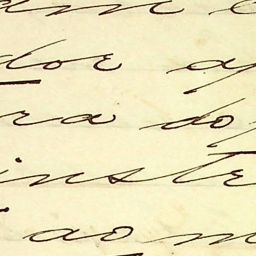 dor a
ra do
instr
ao m